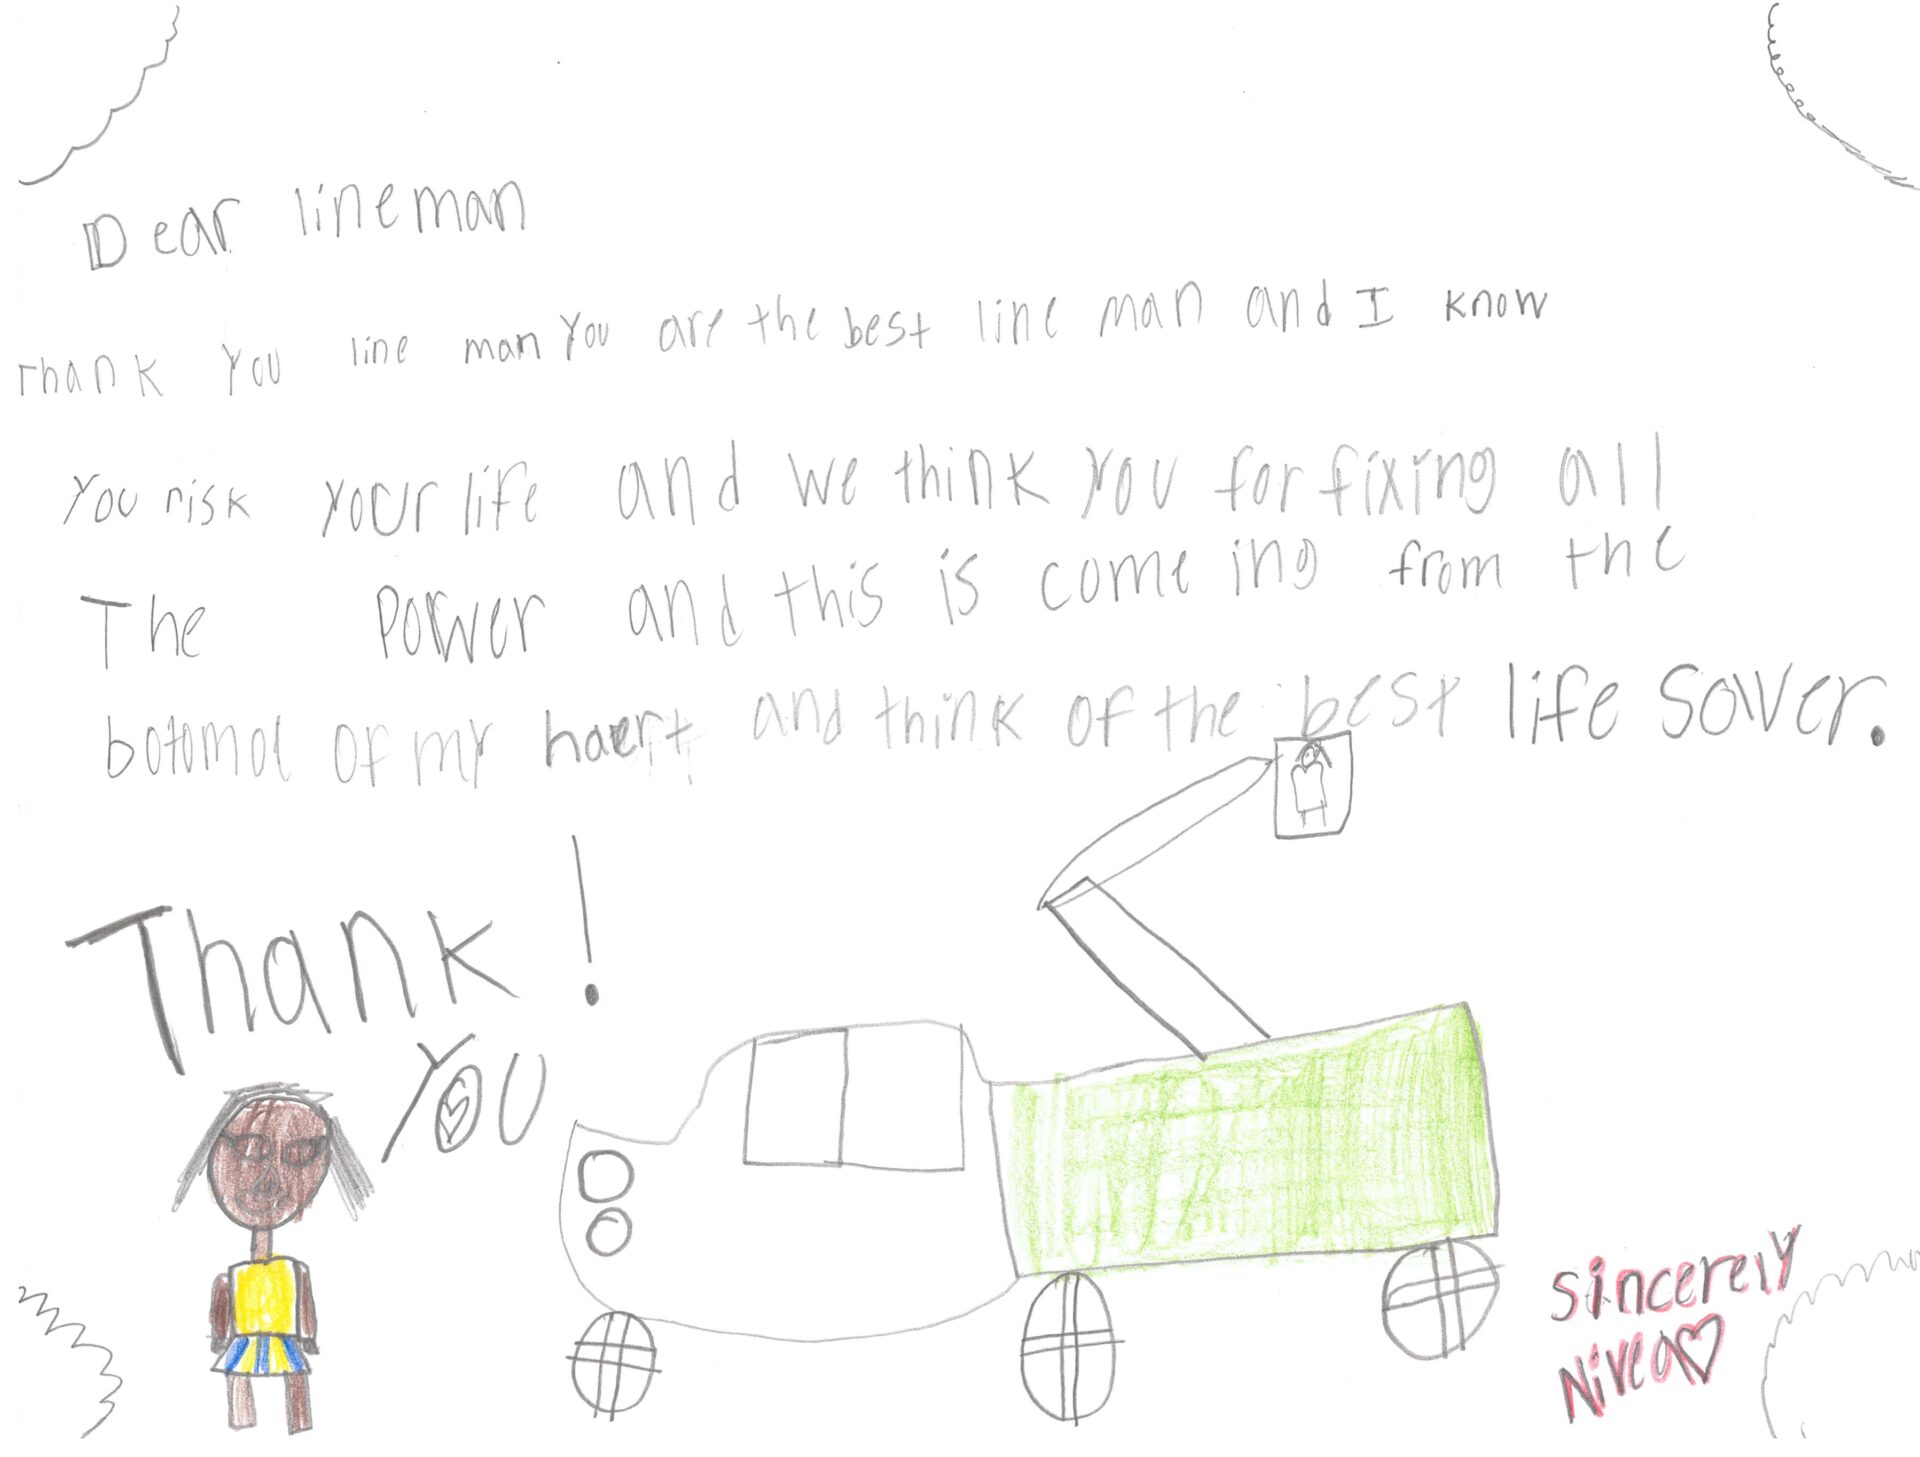 Dear lineman
Thank you line man you are the best line man and I know
you risk your life and we think you for fixing all
The Power and this is come ing from the
botomol of my haert and think of the best life saver.
Thank
you!
sincerely
Nivea